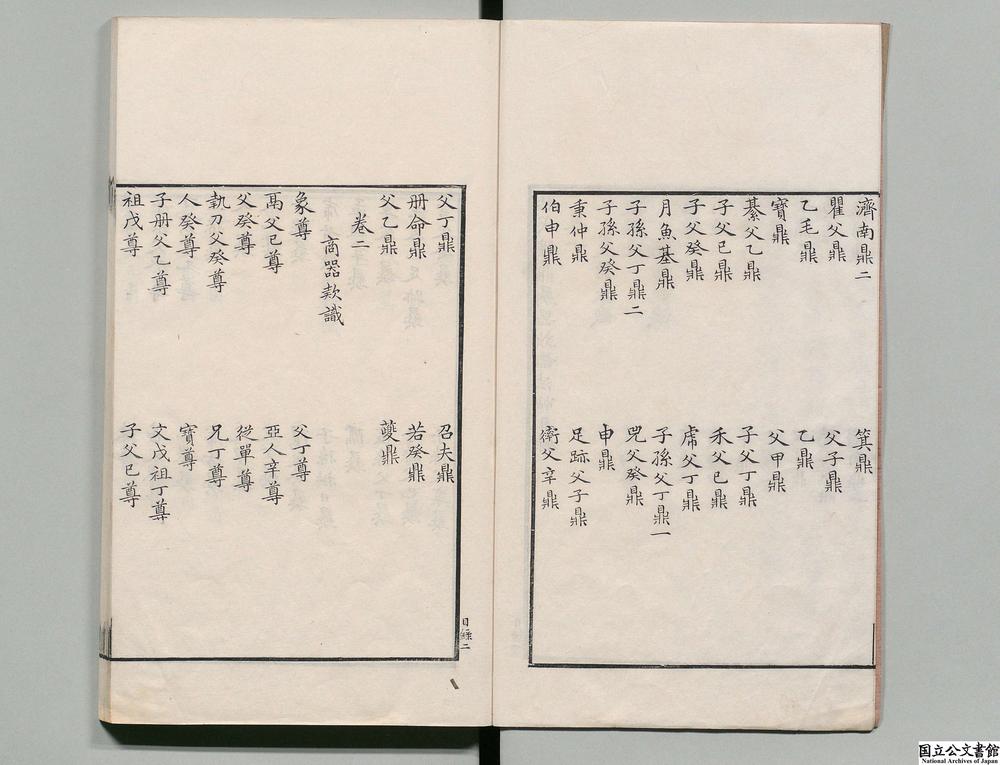 濟南鼎二 箕鼎
瞿父鼎 父子鼎
乙毛鼎 乙鼎
寶鼎 父甲鼎
綦父乙鼎 子父丁鼎
子父巳鼎 禾父巳鼎
子父癸鼎 父丁鼎
月魚基鼎 子孫父丁鼎一
子孫父丁鼎二 兕父癸鼎
子孫父癸鼎 申鼎
秉仲鼎 足跡父子鼎
伯申鼎 衛父辛鼎
父丁鼎 召夫鼎
册命鼎 若癸鼎
父乙鼎 鼎
卷二
商器款識
象尊 父丁尊
鬲父巳尊 亞人辛尊
父癸尊 從單尊
執刀父癸尊 兄丁尊
人癸尊 寶尊
子册父乙尊 文戊祖丁尊
祖戊尊 子父巳尊
目錄二
国立公文書館
National Archives of Japan